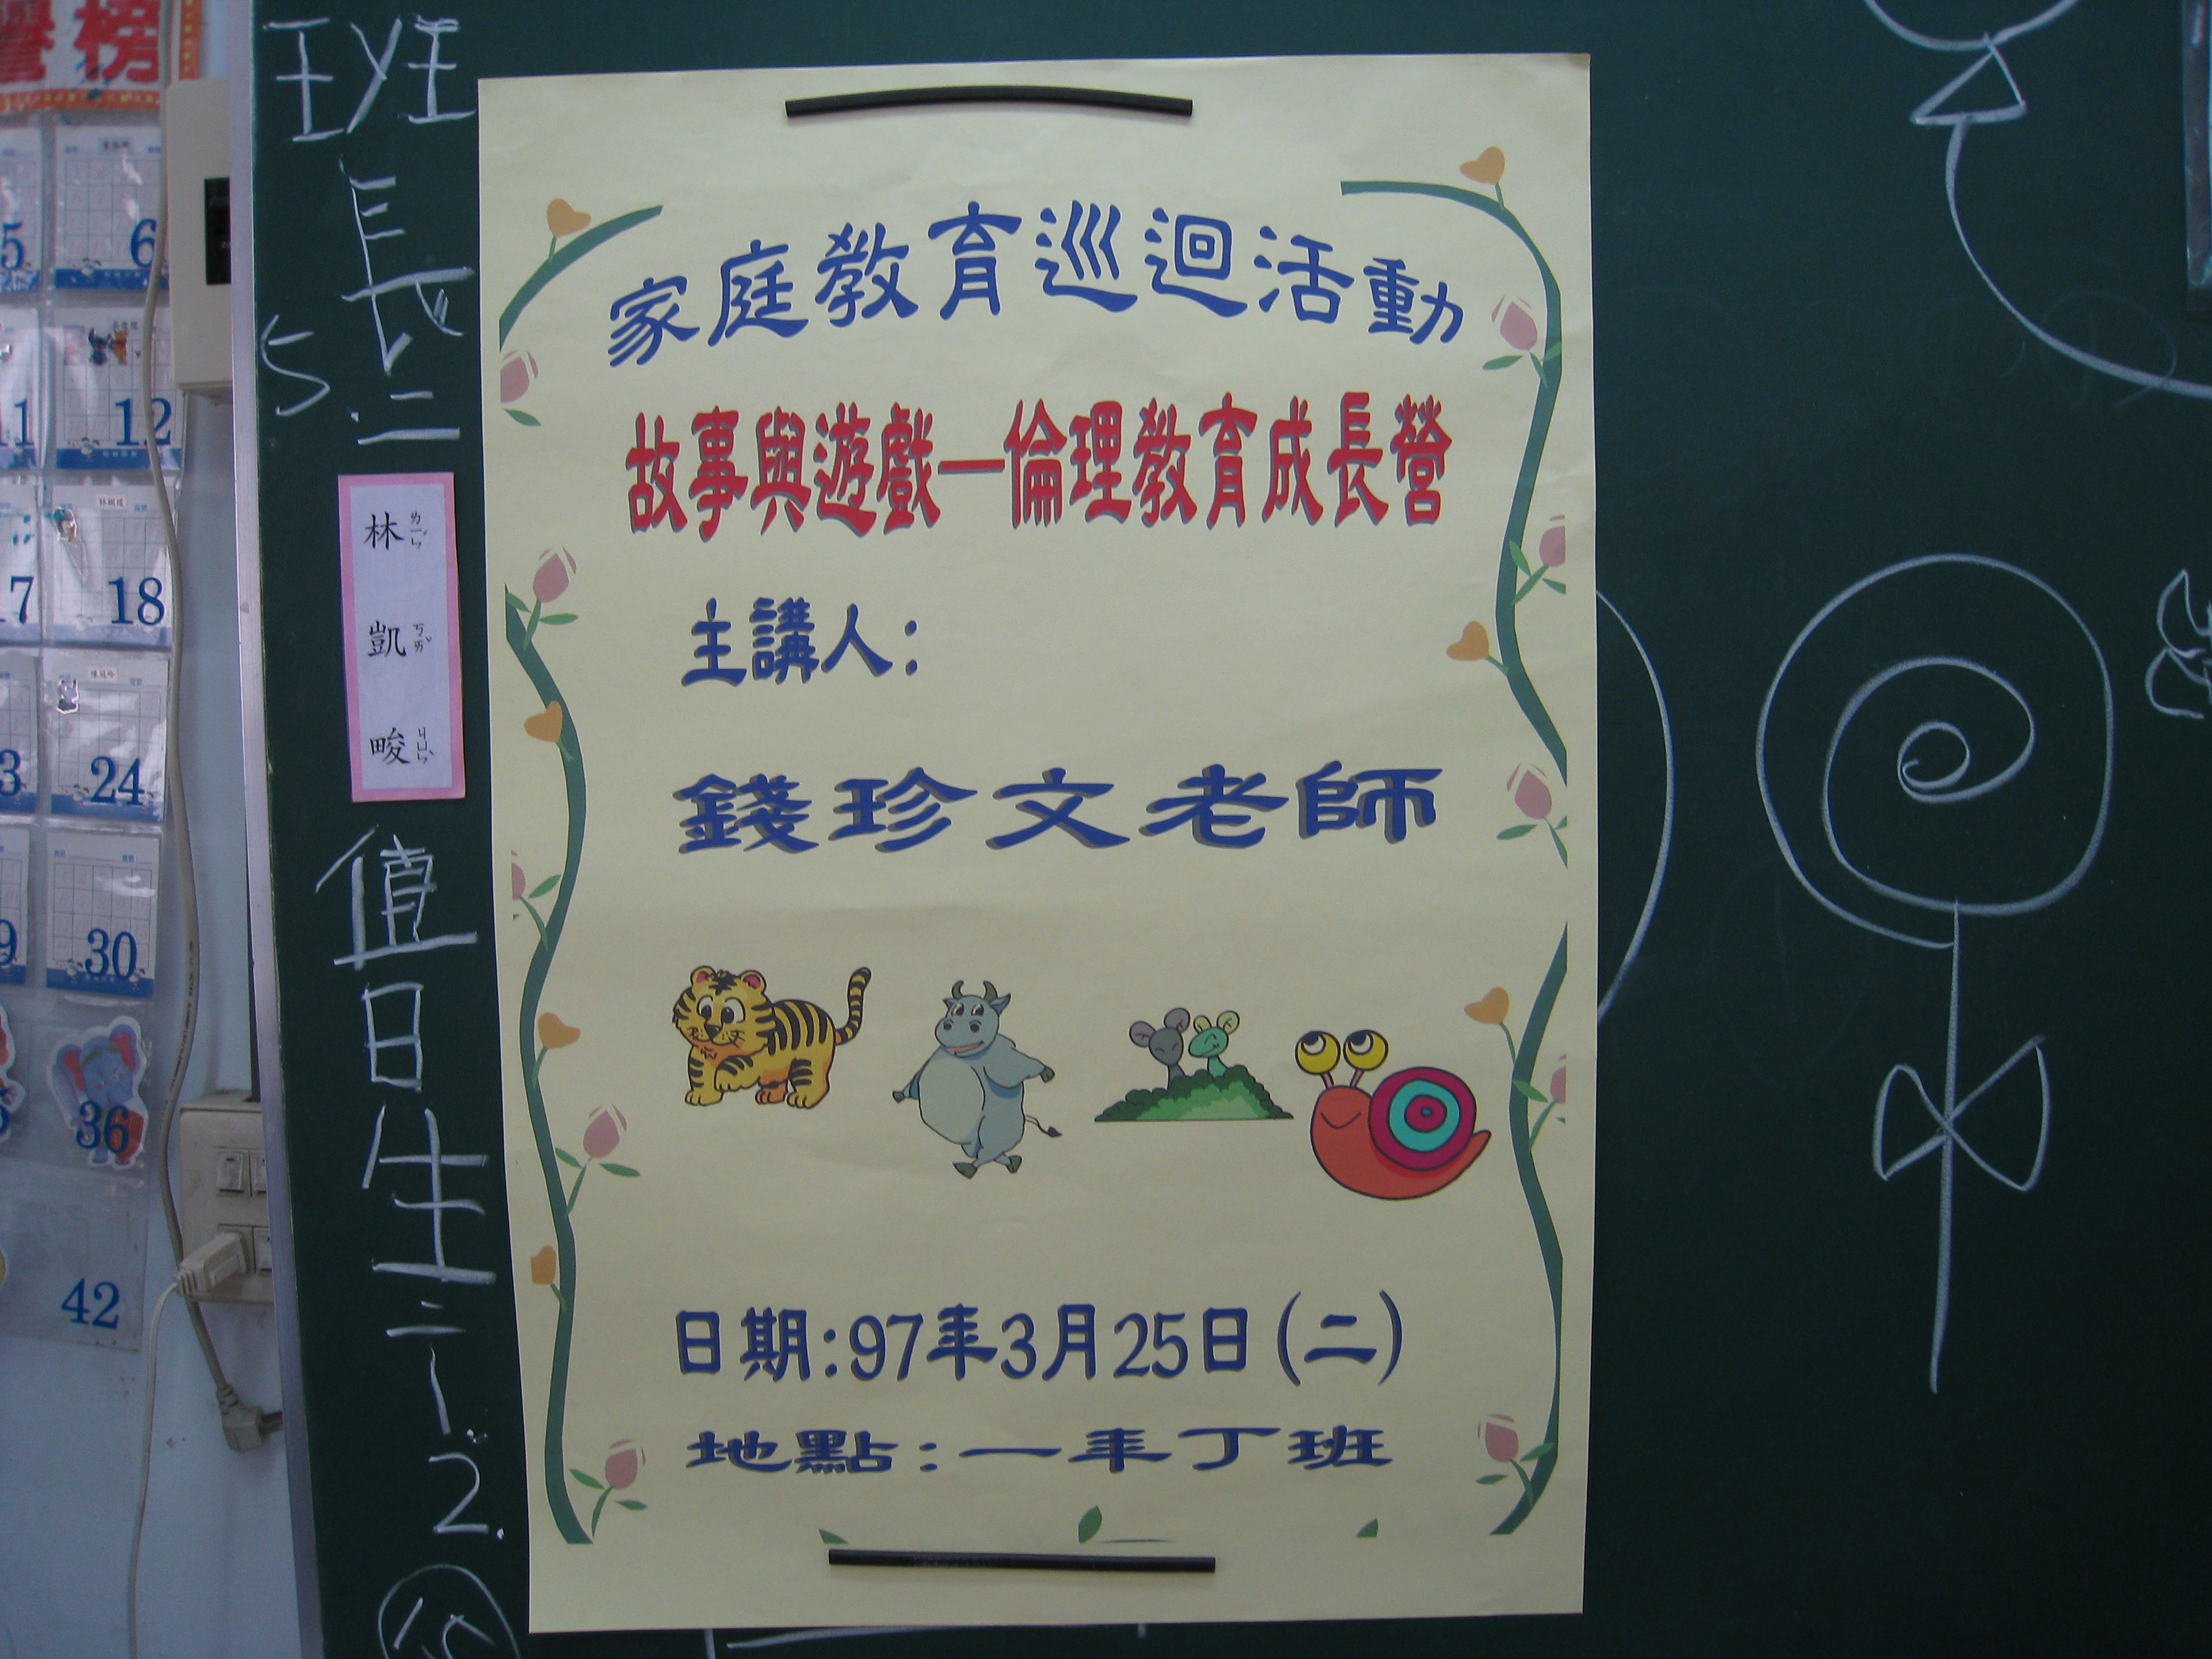 家庭教育巡迴活動
故事與遊戲—倫理教育成長營
主講人：
錢珍文老師
日期:97年3月25日(二)
地點:一年丁班
班長:
林凱畯
ㄌㄧㄣˊ ㄎㄞˇ ㄐㄩㄣˋ
值日生:
1
2.
5
榜
6
12
18
24
30
36
42